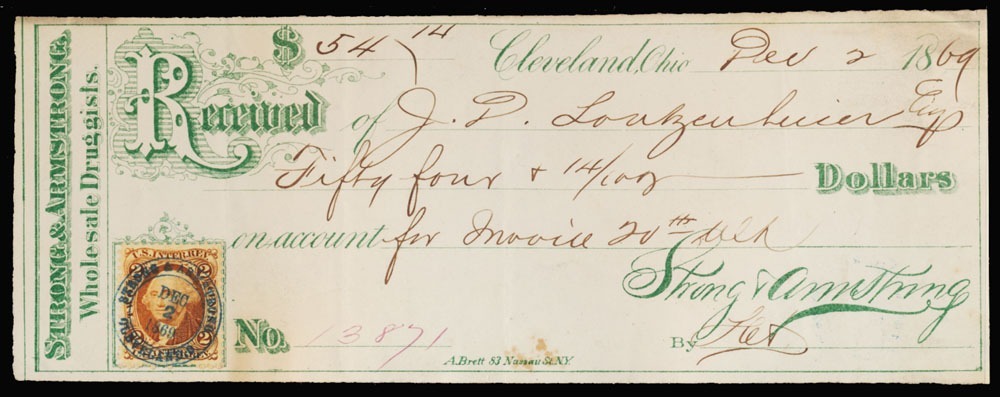 STRONG & ARMSTRONG,
Wholesale Druggists.
$ 54 14
Cleveland, Ohio Dec 2 1869
Received of J. P. Loutzenheiser Esq
Fifty four & 14/100 Dollars
on account for Invoice 20th
Strong & Armstrong
No. 13871
By
A. Brett 83 Nassau St. N.Y.
U.S. INTER. REV.
2 2
STRONG & ARMSTRONG
DEC
2
1869
CLEVELAND O.
2 2